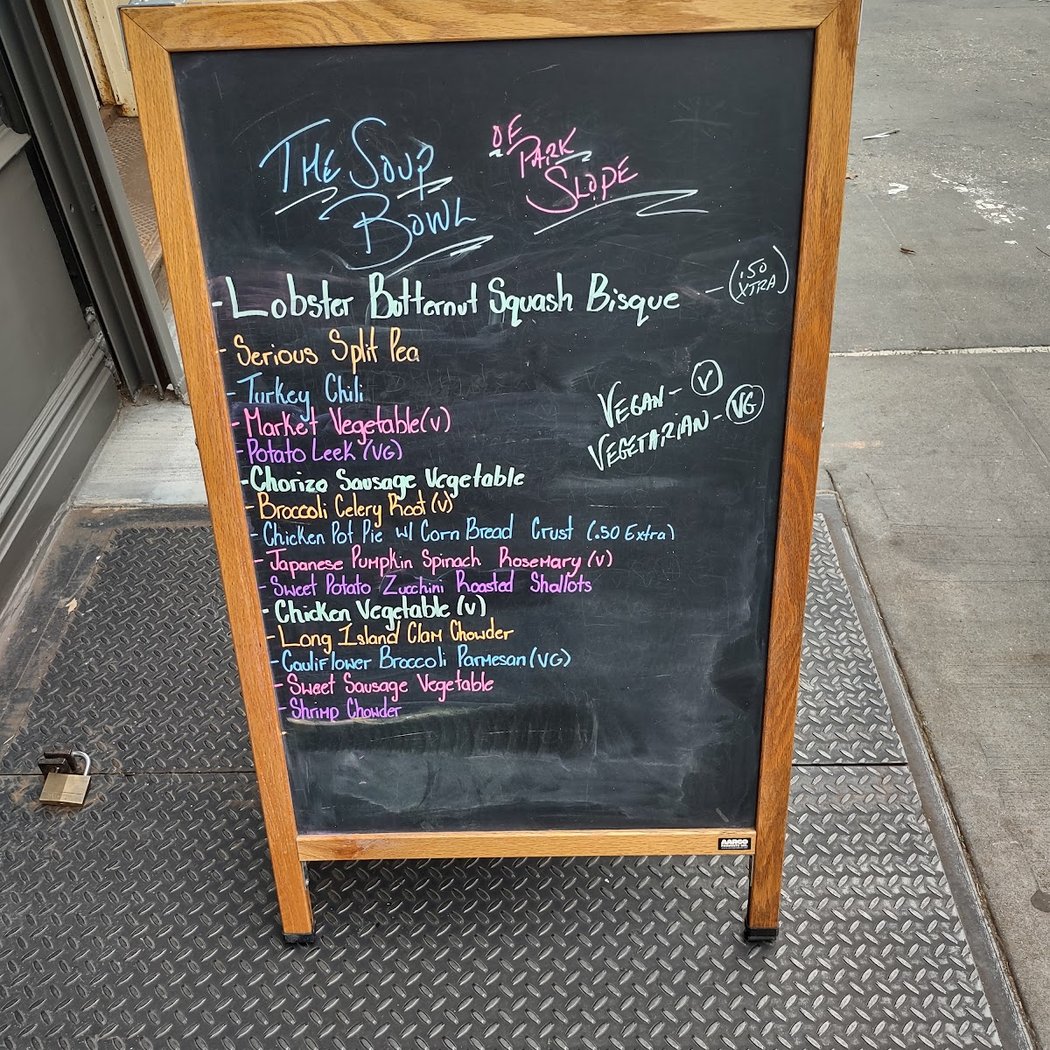 THE SOUP BOWL
OF PARK SLOPE
- Lobster Butternut Squash Bisque - (.50 XTRA)
- Serious Split Pea
- Turkey Chili
- Market Vegetable (V)
- Potato Leek (VG)
- Chorizo Sausage Vegetable
- Broccoli Celery Root (V)
- Chicken Pot Pie w/ Corn Bread Crust (.50 Extra)
- Japanese Pumpkin Spinach Rosemary (V)
- Sweet Potato Zucchini Roasted Shallots
- Chicken Vegetable (V)
- Long Island Clam Chowder
- Cauliflower Broccoli Parmesan (VG)
- Sweet Sausage Vegetable
- Shrimp Chowder
VEGAN - V
VEGETARIAN - VG
AARCO